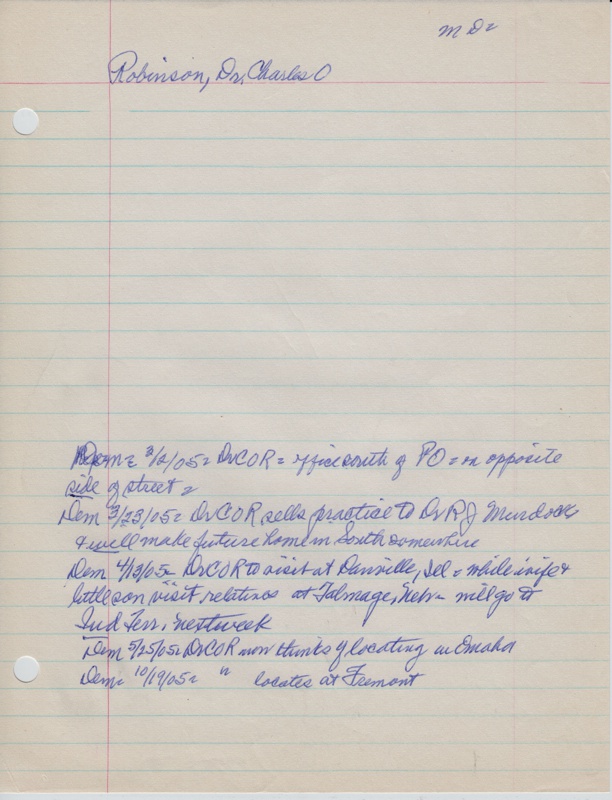 M D=
Robinson, Dr. Charles O
Dem= 3/2/05= Dr C O R = office south of PO = on opposite
side of street =
Dem 3/23/05= Dr C O R sells practice to Dr R J Murdock
& will make future home in South somewhere
Dem 4/13/05= Dr C O R to visit at Danville, Ill = while wife &
little son visit relatives at Talmage, Neb= will go to
Ind Terr. next week
Dem 5/25/05= Dr C O R now thinks of locating in Omaha
Dem= 10/19/05= " locates at Fremont